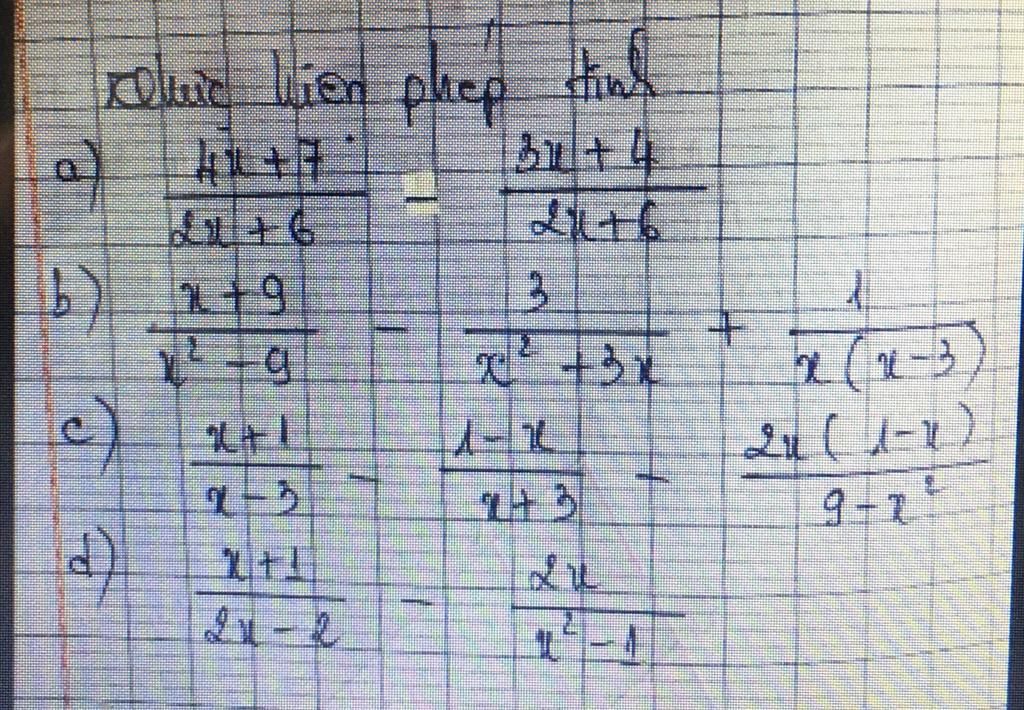 Thực hiện phép tính
a) \frac{4x+7}{2x+6} - \frac{3x+4}{2x+6}
b) \frac{x+9}{x^2-9} - \frac{3}{x^2+3x} + \frac{1}{x(x-3)}
c) \frac{x+1}{x-3} - \frac{1-x}{x+3} - \frac{2x(1-x)}{9-x^2}
d) \frac{x+1}{2x-2} - \frac{2x}{x^2-1}